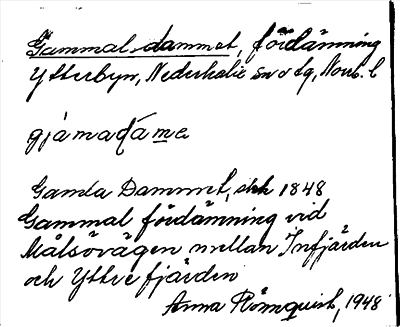 Gammal dammet, fördämning
Ytterbyn, Nederkalix sn o tg, Norrb. l
gjámadáme
Gamla Dammet, skk 1848
Gammal fördämning vid
Målsövägen mellan Infjärden
och Yttre fjärden
Anna Römquist, 1948